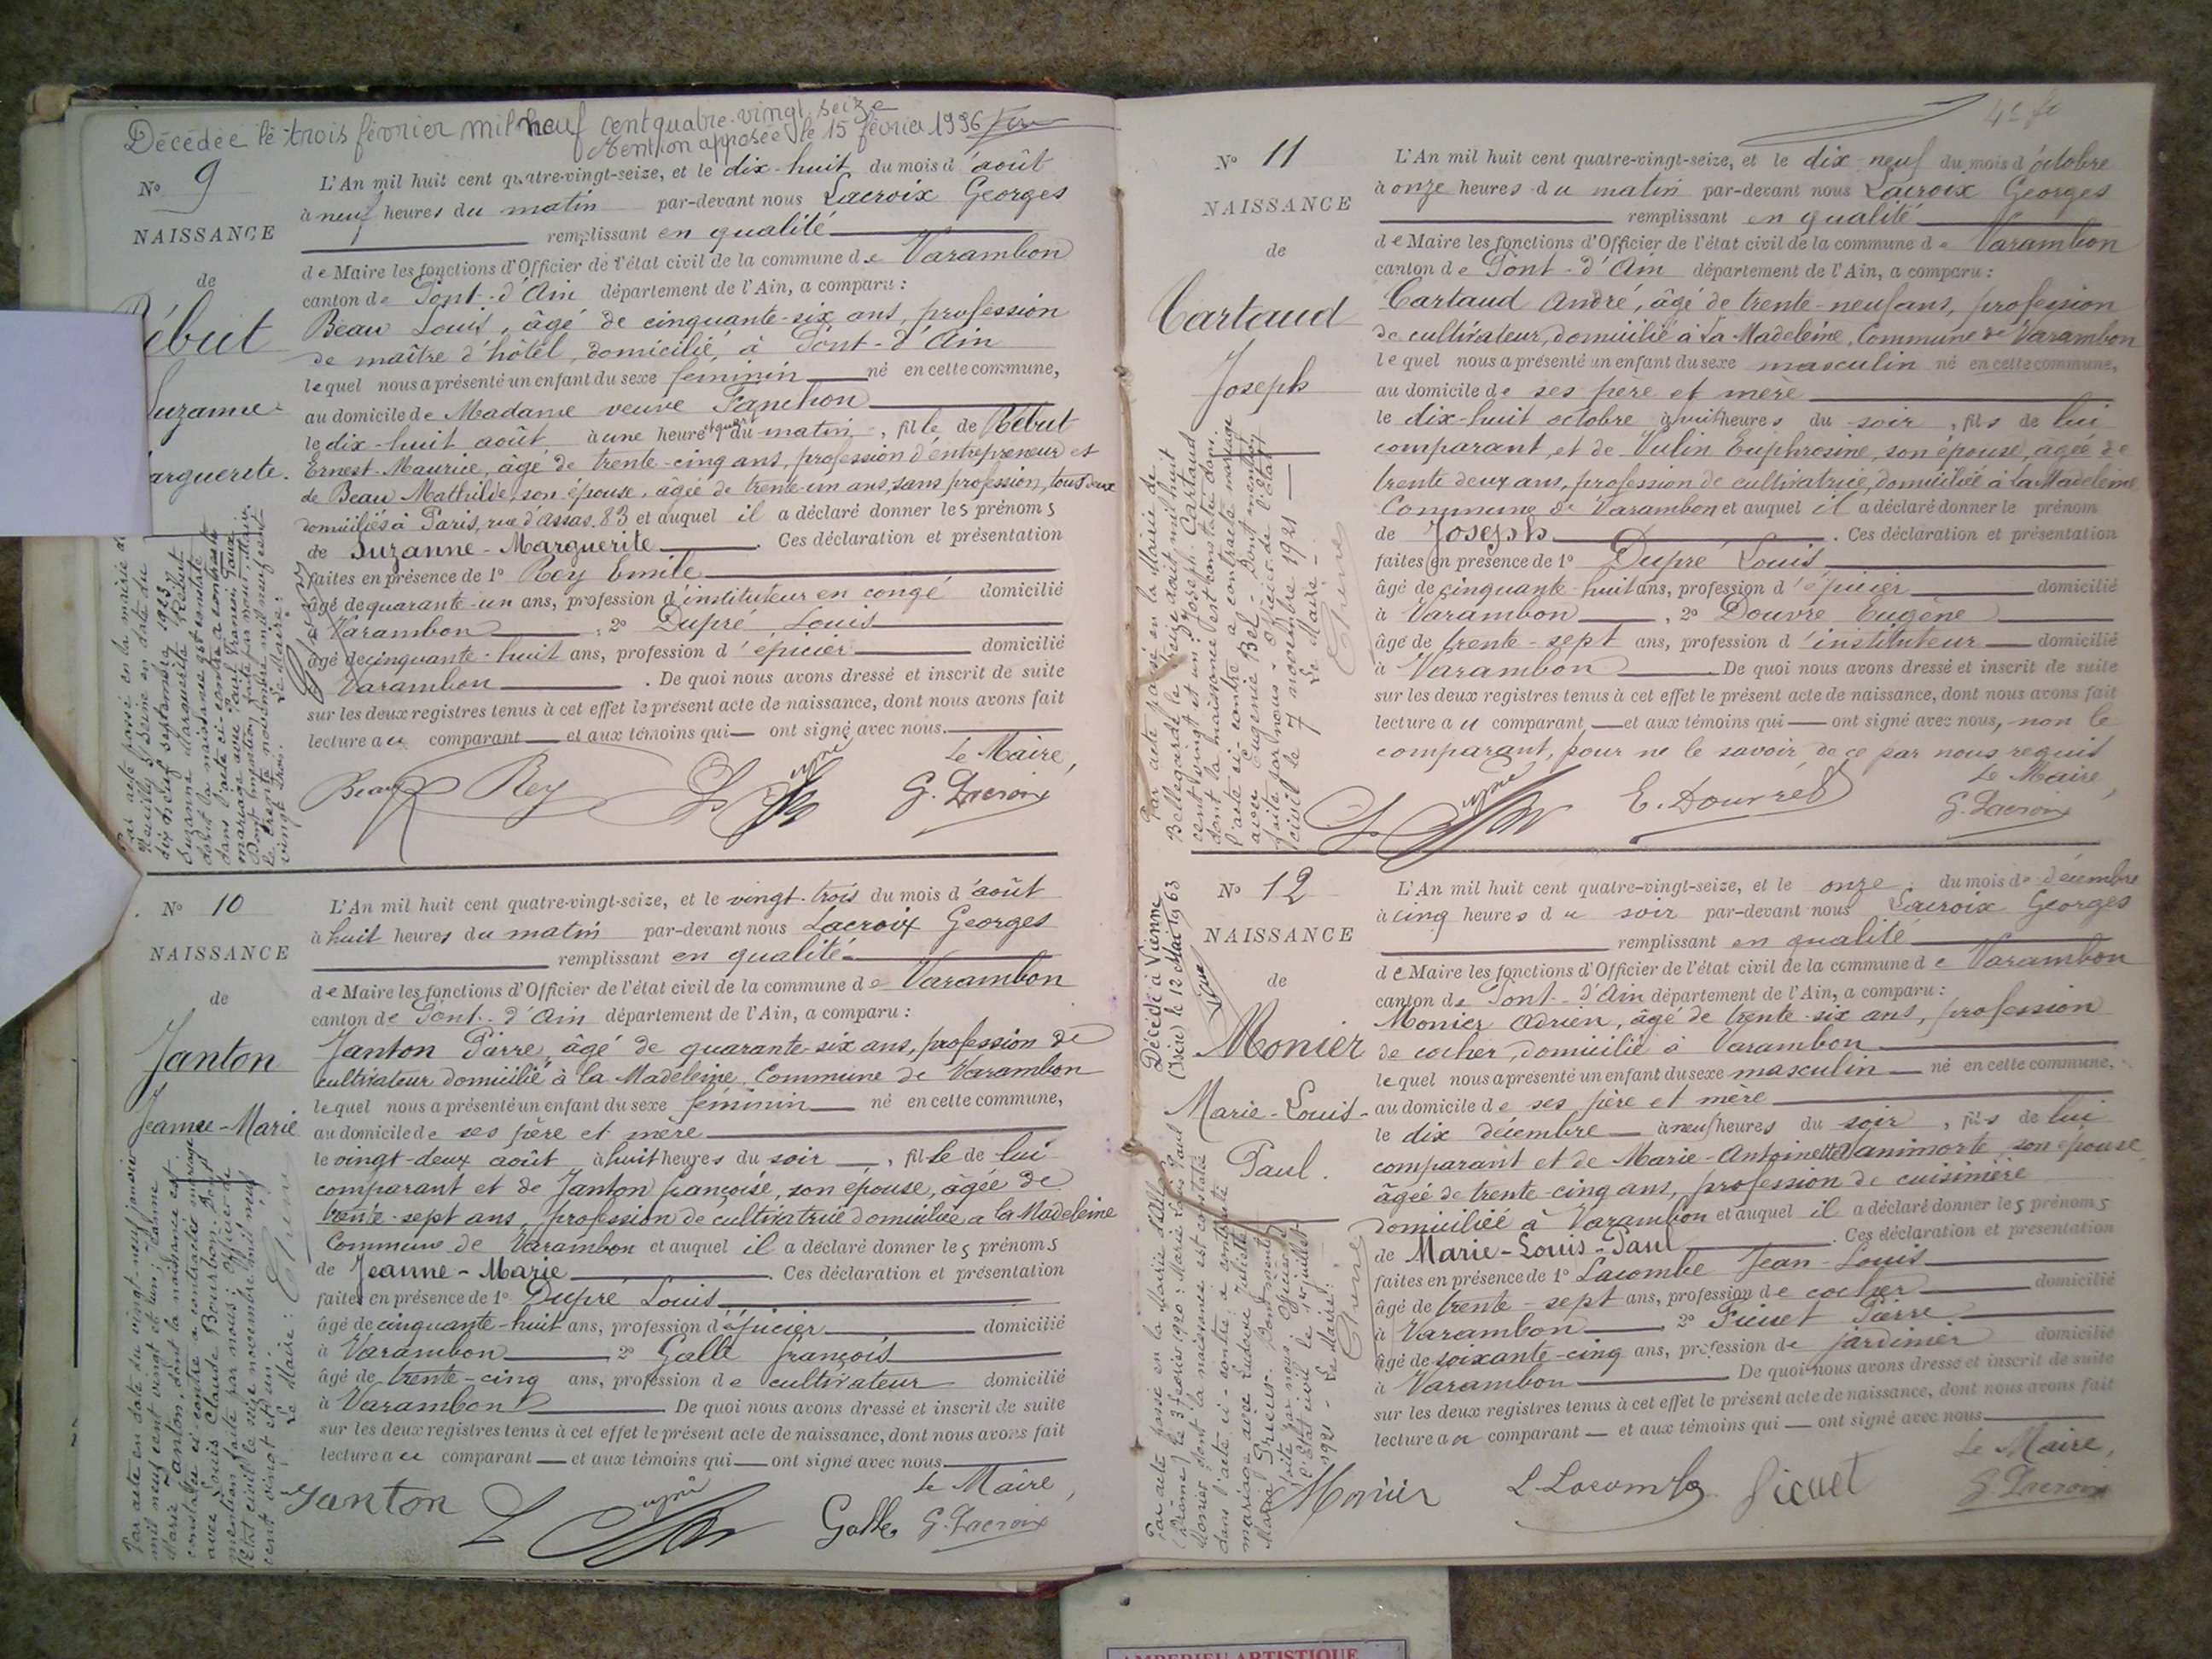 Décédée le trois février mil neuf cent quatre-vingt seize
Mention apposée le 15 février 1996
Nº 9
NAISSANCE
de
ébut
uzanne
arguerite.
L'An mil huit cent quatre-vingt-seize, et le dix-huit du mois d'août
à neuf heures du matin par-devant nous Lacroix Georges
remplissant en qualité
de Maire les fonctions d'Officier de l'état civil de la commune de Varambon
canton de Pont-d'Ain département de l'Ain, a comparu :
Beau Louis, âgé de cinquante-six ans, profession
de maître d'hôtel, domicilié à Pont-d'Ain
lequel nous a présenté un enfant du sexe féminin né en cette commune,
au domicile de Madame veuve Fanchon
le dix-huit août à une heure et quart du matin, fille de Rébut
Ernest-Maurice, âgé de trente-cinq ans, profession d'entrepreneur et
de Beau Mathilde, son épouse, âgée de trente-un ans, sans profession, tous deux
domiciliés à Paris, rue d'Assas, 83 et auquel il a déclaré donner les prénoms
de Suzanne-Marguerite. Ces déclaration et présentation
faites en présence de 1º Rey Emile
âgé de quarante-un ans, profession d'instituteur en congé domicilié
à Varambon, 2º Dupré Louis
âgé de cinquante-huit ans, profession d'épicier domicilié
à Varambon. De quoi nous avons dressé et inscrit de suite
sur les deux registres tenus à cet effet le présent acte de naissance, dont nous avons fait
lecture au comparant et aux témoins qui ont signé avec nous.
Le Maire,
Beau Rey G. Lacroix
Par acte passé en la mairie de
Neuilly s/ Seine en date du
dix neuf septembre 1923
Suzanne Marguerite Rebut
dont la naissance est constatée
dans l'acte ci-contre a contracté
mariage avec Paul
Dont mention faite par nous, Maire
le trente novembre mil neuf cent
vingt trois. Le Maire :
Nº 10
NAISSANCE
de
Janton
Jeanne-Marie
L'An mil huit cent quatre-vingt-seize, et le vingt-trois du mois d'août
à huit heures du matin par-devant nous Lacroix Georges
remplissant en qualité
de Maire les fonctions d'Officier de l'état civil de la commune de Varambon
canton de Pont-d'Ain département de l'Ain, a comparu :
Janton Pierre, âgé de quarante-six ans, profession de
cultivateur domicilié à la Madeleine, Commune de Varambon
lequel nous a présenté un enfant du sexe féminin né en cette commune,
au domicile de ses père et mère
le vingt-deux août à huit heures du soir, fille de lui
comparant et de Janton françoise, son épouse, âgée de
trente-sept ans, profession de cultivatrice domiciliée à la Madeleine
Commune de Varambon et auquel il a déclaré donner les prénoms
de Jeanne-Marie. Ces déclaration et présentation
faites en présence de 1º Dupré Louis
âgé de cinquante-huit ans, profession d'épicier domicilié
à Varambon 2º Galle françois
âgé de trente-cinq ans, profession de cultivateur domicilié
à Varambon De quoi nous avons dressé et inscrit de suite
sur les deux registres tenus à cet effet le présent acte de naissance, dont nous avons fait
lecture au comparant et aux témoins qui ont signé avec nous
Le Maire,
Janton Galle G. Lacroix
Par acte en date du vingt-neuf janvier
mil neuf cent vingt et un : Jeanne
Marie Janton dont la naissance est
constatée ci contre a contracté mariage
avec Louis Claude Bourbon. Dont
mention faite par nous : Officier de
l'état civil le seize novembre mil neuf
cent vingt et un.
Le Maire :
Nº 11
NAISSANCE
de
Cartaud
Joseph
L'An mil huit cent quatre-vingt-seize, et le dix-neuf du mois d'octobre
à onze heures du matin par-devant nous Lacroix Georges
remplissant en qualité
de Maire les fonctions d'Officier de l'état civil de la commune de Varambon
canton de Pont-d'Ain département de l'Ain, a comparu :
Cartaud André, âgé de trente-neuf ans, profession
de cultivateur, domicilié à La Madeleine, Commune de Varambon
lequel nous a présenté un enfant du sexe masculin né en cette commune,
au domicile de ses père et mère
le dix-huit octobre à huit heures du soir, fils de lui
comparant, et de Vulin Euphrosine, son épouse, agée de
trente deux ans, profession de cultivatrice, domiciliée à la Madeleine
Commune de Varambon et auquel il a déclaré donner le prénom
de Joseph. Ces déclaration et présentation
faites en présence de 1º Dupré Louis
âgé de cinquante-huit ans, profession d'épicier domicilié
à Varambon, 2º Douvre Eugène
âgé de trente-sept ans, profession d'instituteur domicilié
à Varambon De quoi nous avons dressé et inscrit de suite
sur les deux registres tenus à cet effet le présent acte de naissance, dont nous avons fait
lecture au comparant et aux témoins qui ont signé avec nous, non le
comparant, pour ne le savoir de ce par nous requis
Le Maire,
E. Douvre G. Lacroix
Par acte passé en la Mairie de
Bellegarde le août mil huit
cent vingt et un Joseph Cartaud
dont la naissance est constatée dans
l'acte ci contre a contracté mariage
avec Eugénie Bel. Dont mention
faite par nous Officier de l'état
civil le 7 novembre 1921
Le Maire
Nº 12
NAISSANCE
de
Monier
Marie-Louis-
Paul.
Décédé à Vienne
(Isère) le 12 Mai 1963
L'An mil huit cent quatre-vingt-seize, et le onze du mois de décembre
à cinq heures du soir par-devant nous Lacroix Georges
remplissant en qualité
de Maire les fonctions d'Officier de l'état civil de la commune de Varambon
canton de Pont-d'Ain département de l'Ain, a comparu :
Monier Adrien, âgé de trente-six ans, profession
de cocher, domicilié à Varambon
lequel nous a présenté un enfant du sexe masculin né en cette commune,
au domicile de ses père et mère
le dix décembre à neuf heures du soir, fils de lui
comparant et de Marie-Antoinette son épouse
âgée de trente-cinq ans, profession de cuisinière
domiciliée à Varambon et auquel il a déclaré donner les prénoms
de Marie-Louis-Paul. Ces déclaration et présentation
faites en présence de 1º Lacombe Jean-Louis
âgé de trente-sept ans, profession de cocher domicilié
à Varambon 2º Picuet Pierre
âgé de soixante-cinq ans, profession de jardinier domicilié
à Varambon De quoi nous avons dressé et inscrit de suite
sur les deux registres tenus à cet effet le présent acte de naissance, dont nous avons fait
lecture au comparant et aux témoins qui ont signé avec nous
Le Maire,
Monier L. Lacombe Picuet G. Lacroix
Par acte passé en la Mairie
(Drôme) le 3 février 1920 : Marie Louis Paul
Monier dont la naissance est constatée
dans l'acte ci-contre a contracté
mariage avec Ludovic Juliette
Dont mention
faite par nous Officier de
l'état civil le juillet
1921 Le Maire :
AMBERIEU ARTISTIQUE